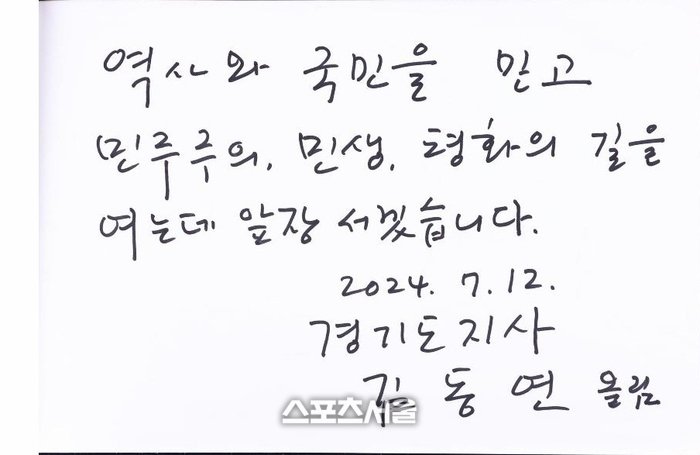 역사와 국민을 믿고
민주주의, 민생, 평화의 길을
여는데 앞장 서겠습니다.
2024. 7. 12.
경기도지사
김동연 올림
스포츠서울